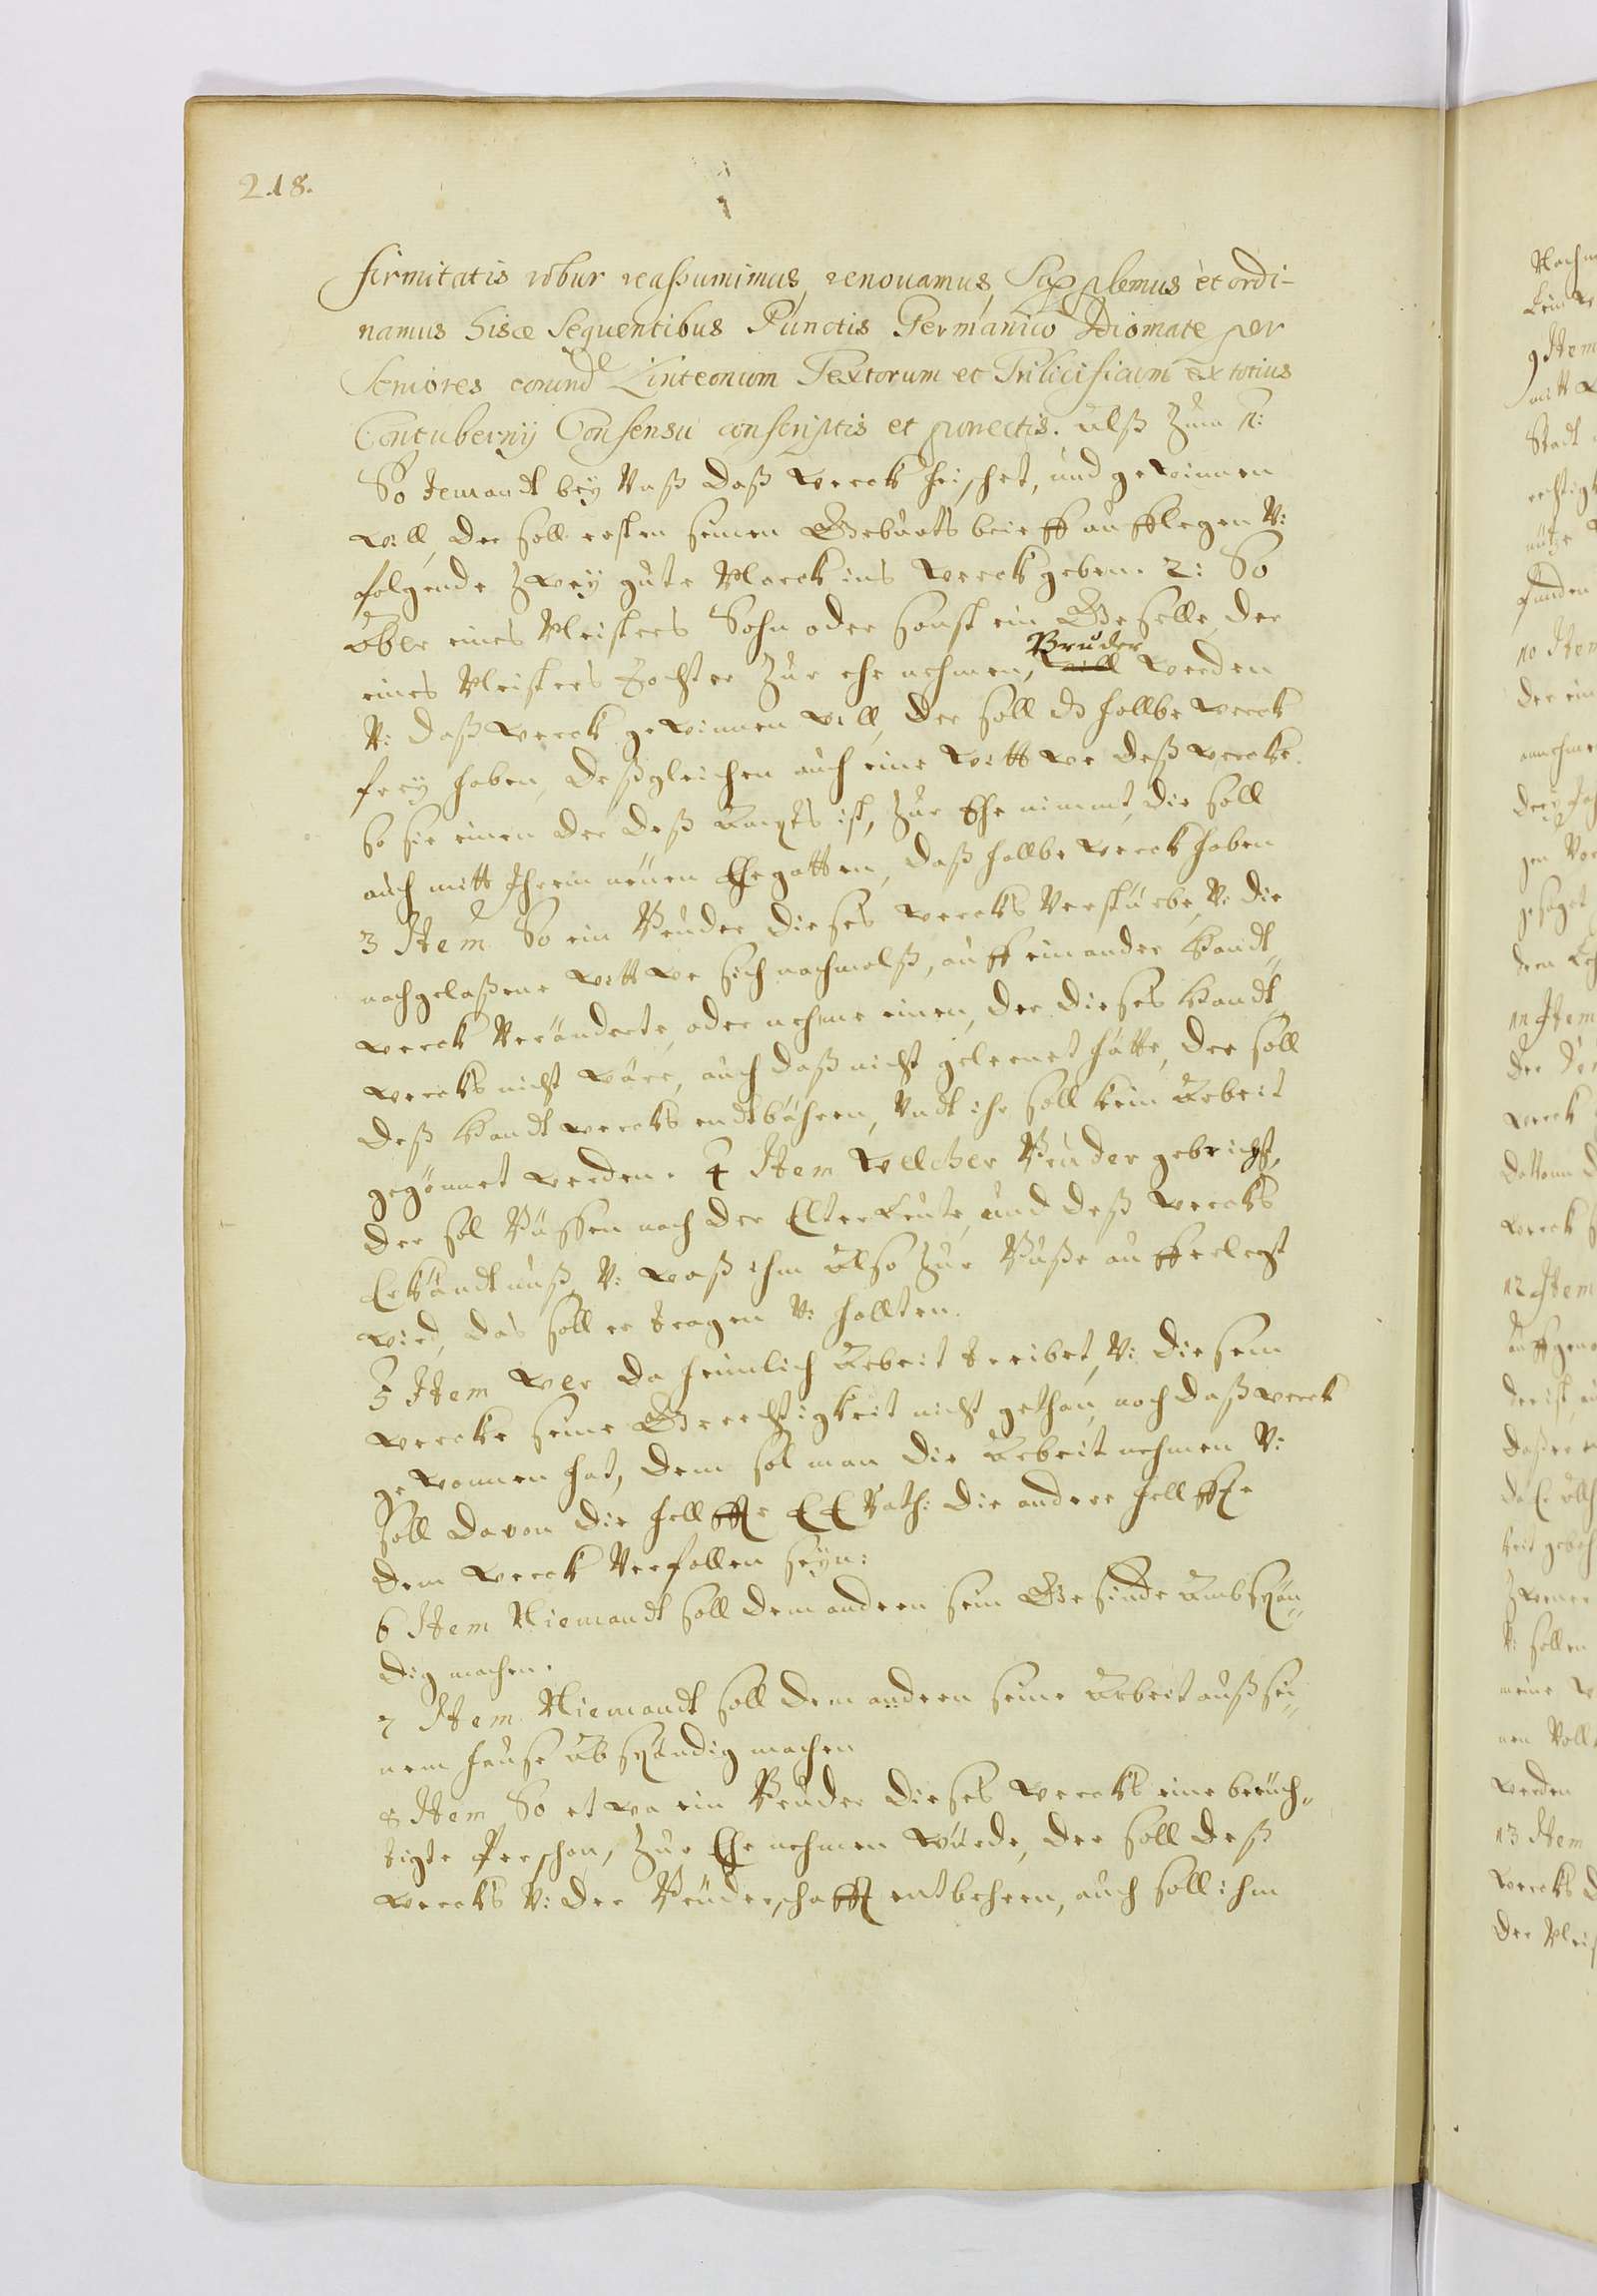 218.
firmitatis robur reassumimus, renouamus, Supplemus et ordi-
namus hisce Sequentibus Punctis Germanico Idiomate per
Seniores eorund Linteonum Textorum et Trilicificum ex totius
Contubernij Consensu conscriptis et porrectis. Alß Zum 1:
So Jemandt beÿ Vnß daß Werck heischet, und gewinnen
will, der soll ersten seinen Geburts brieff aufflegen V:
folgends Zweÿ gute Marck ins Werck geben. 2: So
Aber eines Meisters Sohn oder sonst ein Geselle, der
eines Meisters Tochter Zur ehe nehmen, will Bruder werden
V: daß Werck gewinnen will, der soll d hallbe Werck
freÿ haben, deßgleichen auch eine Wittwe deß Wercks.
So sie einen der deß Ampts ist, Zur Ehe nimmt, die soll
auch mitt Ihrem neuen Ehegatten, daß hallbe Werck haben
3 Item So ein Bruder dieses Wercks Verstürbe, V: die
nachgelaßene Wittwe sich nachmalß, auff ein ander Handt„
werck Veränderte, oder nehme einen, der dieses Handt„
wercks nicht wäre, auch daß nicht gelernet hätte, der soll
deß Handtwercks endtbähren, Vndt ihr soll kein Arbeit
gegönnet werden. 4 Item Welcher Bruder gebricht,
der sol Büssen nach der ElterLeute, und deß Wercks
Erkändtnuß, V: Waß ihm Also Zur Buße aufferlegt
wird, das soll er tragen V: hallten.
5 Item Wer da heimlich Arbeit treibet, V: diesem
Wercke seine Gerechtigkeit nicht gethan, noch daß Werck
gewonnen hat, dem sol man die Arbeit nehmen V:
soll davon die hellffte EE Rath: die andere hellffte
dem Werck Verfallen seÿn:
6 Item Niemandt soll dem andern sein Gesinde Ambstän„
dig machen.
7 Item Niemandt soll dem andern seine Arbeit auß sei„
nem hause Abständig machen
8 Item So etwa ein Bruder dieses Wercks eine berüch„
tigte Perschon, Zur Ehe nehmen würde, der soll deß
Wercks V: der Brüderschafft entbehren, auch soll ihm